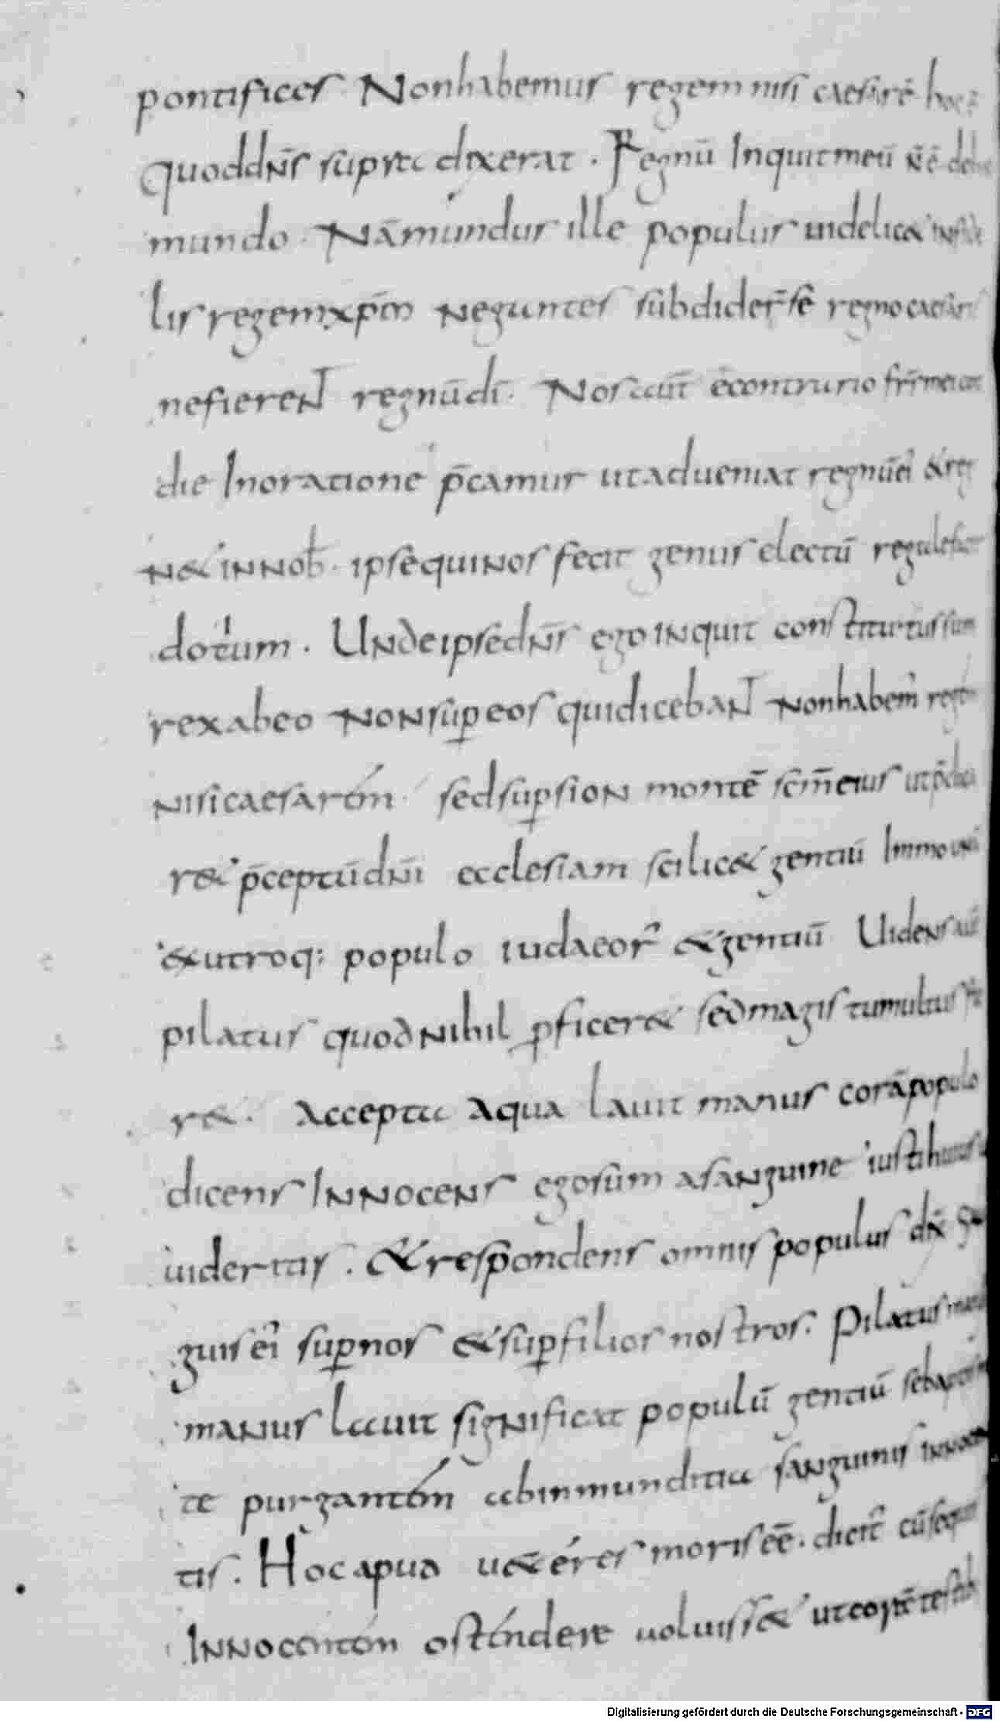 pontifices Nonhabemus regem nisi caesarē hoc ē
quoddn̄s supra dixerat . Regnū Inquit meū n̄ ē de hoc
mundo . Nāmundus ille populus uidelic& infide
lis regemxp̄m neguntes subdider̄ sē regno caesaris
nefierent regnūdī . Nos aut̄ econtrurio fr̄s mei
die Inoratione p̄camur utadueniat regnūei &reg
n&innob̄ . ipsequinos fecit genus electū regale sacer
dotum . Undeipsedn̄s ego inquit constitutus sum
rex abeo nonsup̱eos quidiceban̄t nonhabem̄ regem
nisicaesarem . sedsup̱sion montē sc̄m eius
r& p̄ceptūdn̄i ecclesiam scilic& gentiū Immo
&utroq; populo iudaeor̄ &gentiū Uidens aut̄
pilatus quod nihil p̱ficer& sed magis tumultus
r& . accepta aqua lauit manus corā populo
dicens Innocens ego sum asanguine iusti huius
uideritis . &respondens omnis populus dix̄ San
guis eī sup̱nos &sup̱filios nostros . Pilatus
manus lauit significat populū gentiū se baptis
te purgantem abinmunditia sanguinis innocen
tis . Hoc apud u&eres moris eē . dicit̄ cū
Innocentem ostendere uoluiss&